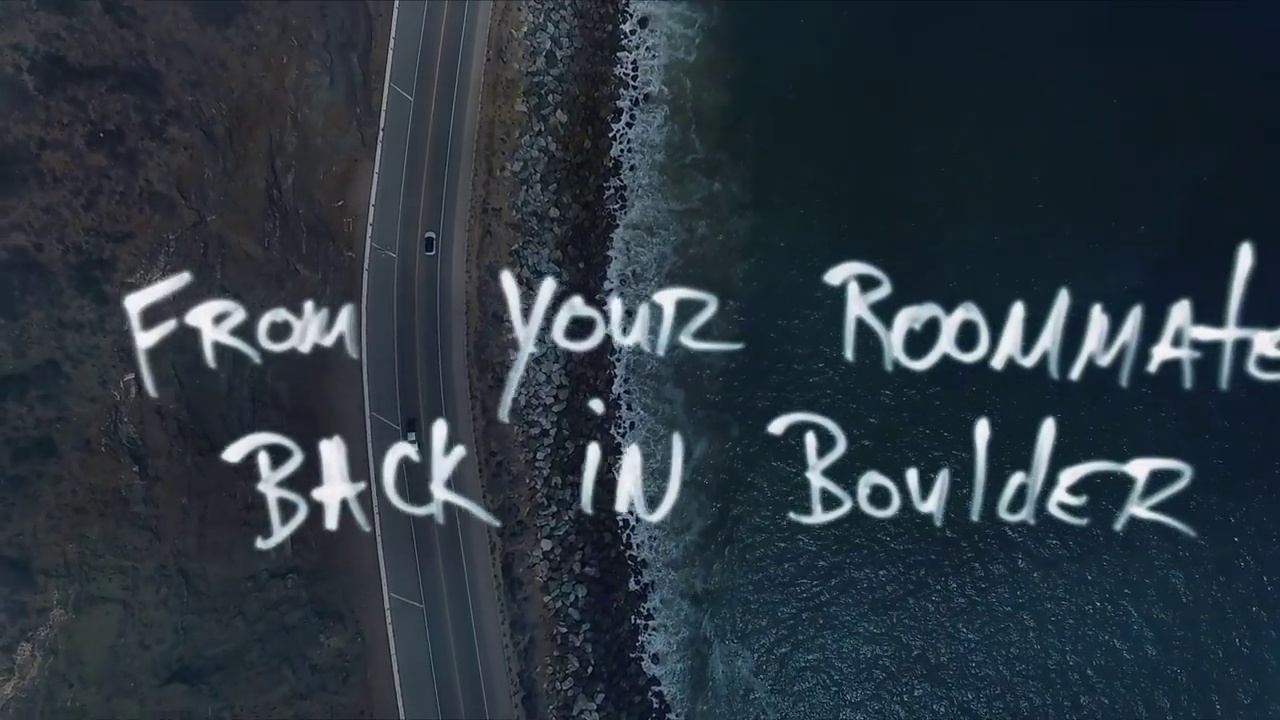 FROM YOUR ROOMMATE
BACK iN BouldER